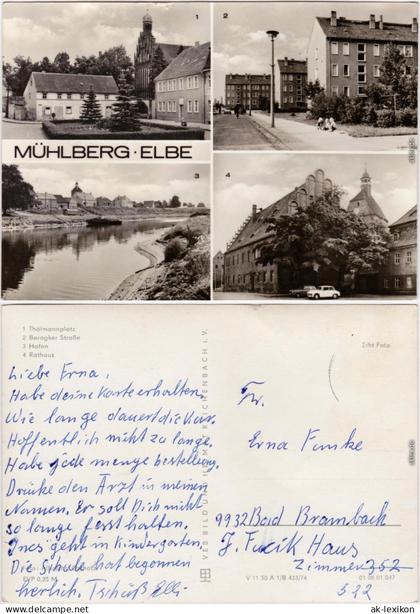 1
2
MÜHLBERG · ELBE
3
4
1 Thälmannplatz
2 Boragker Straße
3 Hafen
4 Rathaus
Echt Foto
Liebe Erna,
Habe deine Karte erhalten.
Wie lange dauert die Kur.
Hoffentlich nicht zu lange.
Habe jede menge bestellung.
Drücke den Arzt in meinen
Namen. Er soll Dich nicht
so lange festhalten.
Ines geht in Kindergarten.
Die Schule hat begonnen
herlich. Tschüß Elli
EVP 0,25 M
VEB BILD UND HEIMAT REICHENBACH i. V.
Fr.
Erna Funke
9932 Bad Brambach
J. Fucik Haus
Zimmer 252
522
V 11 50 A 1/B 433/74
01 06 01 047